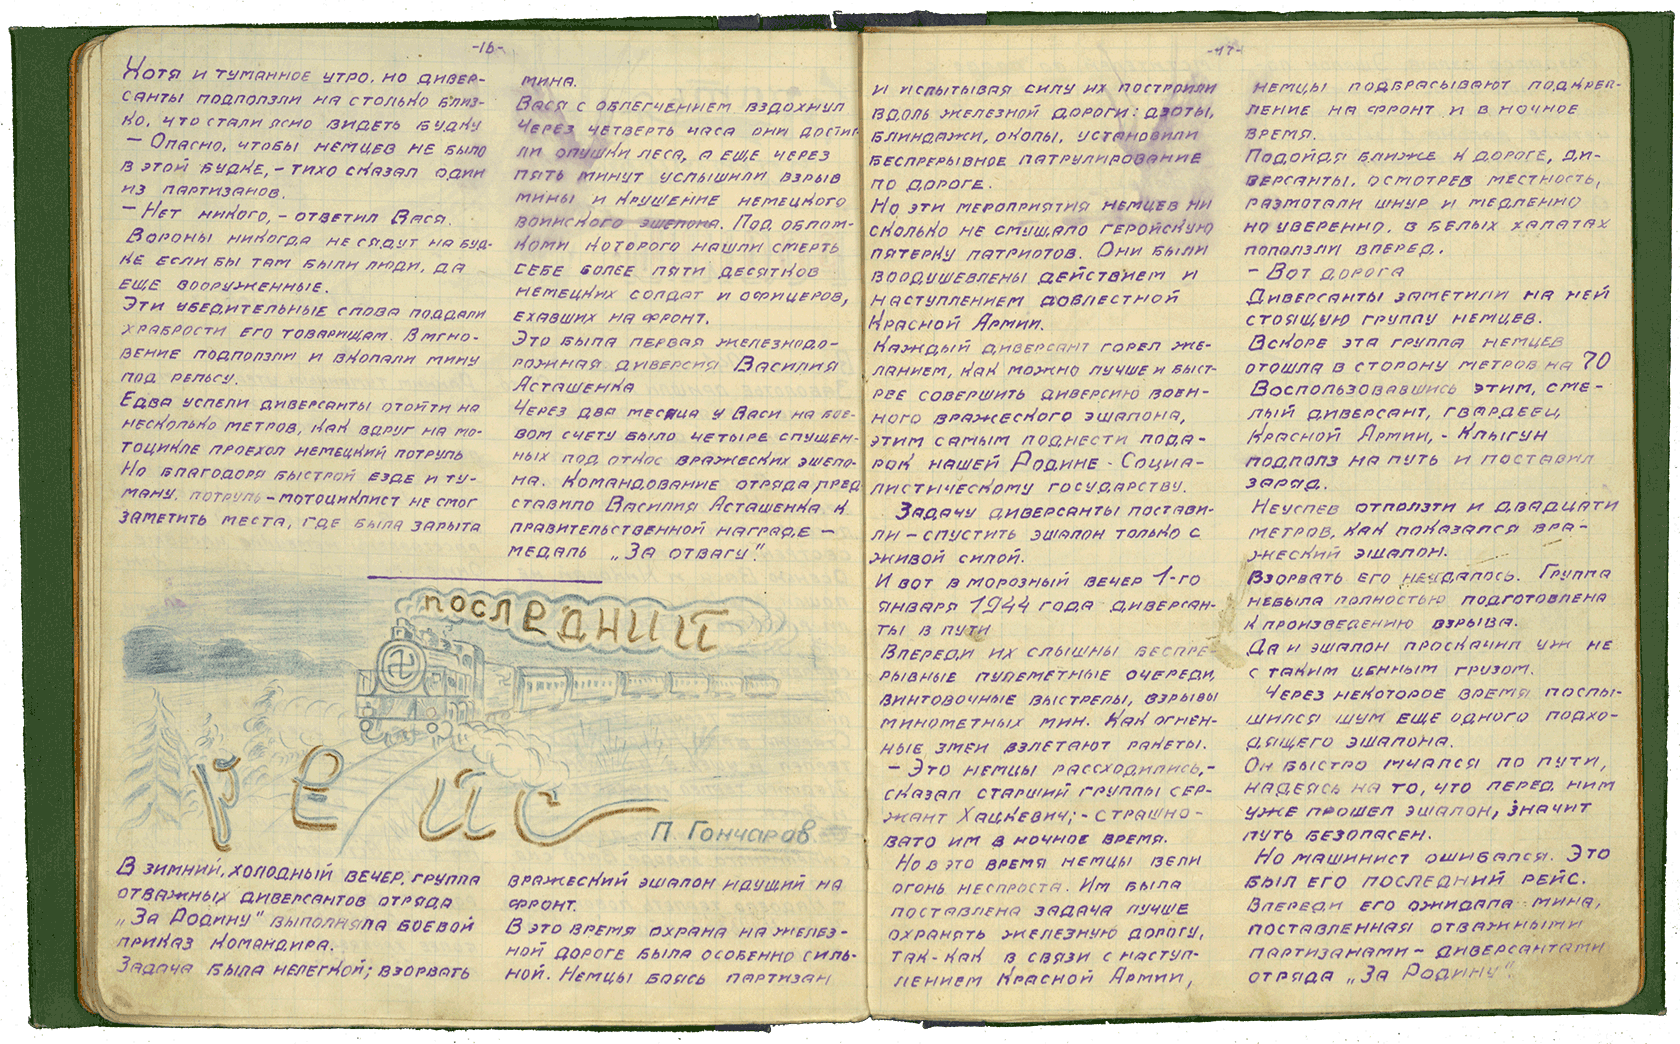 -16-
Хотя и туманное утро, но дивер-
санты подползли на столько близ-
ко, что стали ясно видеть будку
— Опасно, чтобы немцев не было
в этой будке, - тихо сказал один
из партизанов.
— Нет никого, - ответил Вася.
Вороны никогда не сядут на буд-
ке если бы там были люди, да
еще вооруженные.
Эти убедительные слова поддали
храбрости его товарищам. В мгно-
вение подползли и вкопали мину
под рельсу.
Едва успели диверсанты отойти на
несколько метров, как вдруг на мо-
тоцикле проехол немецкий потруль
Но благодоря быстрой езде и ту-
ману, потруль-мотоциклист не смог
заметить места, где была зарыта
мина.
Вася с облегчением вздохнул
Через четверть часа они достиг-
ли опушки леса, а еще через
пять минут услышили взрыв
мины и крушение немецкого
воинского эшелона. Под облом-
коми которого нашли смерть
себе более пяти десятков
немецких солдат и офицеров,
ехавших на фронт.
Это была первая железнодо-
рожная диверсия Василия
Асташенка
Через два месяца у Васи на бое-
вом счету было четыре спущен-
ных под откос вражеских эшело-
на. Командование отряда пред
ставило Василия Асташенка к
правительственной награде —
медаль „За отвагу".
последний
рейс
П. Гончаров.
В зимний, холодный вечер, группа
отважных диверсантов отряда
„За Родину" выполняла боевой
приказ командира.
Задача была нелегкой; взорвать
вражеский эшалон идущий на
фронт.
В это время охрана на желез-
ной дороге была особенно силь-
ной. Немцы боясь партизан
-17-
и испытывая силу их построили
вдоль железной дороги: дзоты,
блиндажи, окопы, установили
беспрерывное патрулирование
по дороге.
Но эти мероприятия немцев ни
сколько не смущало геройскую
пятерку патриотов. Они были
воодушевлены действием и
наступлением доблестной
Красной Армии.
Каждый диверсант горел же-
ланием, как можно лучше и быст-
рее совершить диверсию воен-
ного вражеского эшалона,
этим самым поднести пода-
рок нашей Родине - Социа-
листическому государству.
Задачу диверсанты постави-
ли - спустить эшалон только с
живой силой.
И вот в морозный вечер 1-го
января 1944 года диверсан-
ты в пути
Впереди их слышны беспре-
рывные пулеметные очереди,
винтовочные выстрелы, взрывы
минометных мин. Как огнен-
ные змеи взлетают ракеты.
— Это немцы рассходились, -
сказал старший группы сер-
жант Хацкевич; - страшно-
вато им в ночное время.
Но в это время немцы вели
огонь неспроста. Им была
поставлена задача лучше
охранять железную дорогу,
так-как в связи с наступ-
лением Красной Армии,
немцы подбрасывают подкреп-
ление на фронт и в ночное
время.
Подойдя ближе к дороге, ди-
версанты, осмотрев местность,
размотали шнур и медленно
но уверенно, в белых халатах
поползли вперед.
- Вот дорога
Диверсанты заметили на ней
стоящую группу немцев.
Вскоре эта группа немцев
отошла в сторону метров на 70
Воспользовавшись этим, сме-
лый диверсант, гвардеец
Красной Армии, - Клыгун
подполз на путь и поставил
заряд.
Неуспев отползти и двадцати
метров, как показался вра-
жеский эшалон.
Взорвать его неудалось. Группа
небыла полностью подготовлена
к произведению взрыва.
Да и эшалон проскачил уж не
с таким ценным грузом.
Через некоторое время послы-
шился шум еще одного подхо-
дящего эшалона.
Он быстро мчался по пути,
надеясь на то, что перед ним
уже прошел эшалон, значит
путь безопасен.
Но машинист ошибался. Это
был его последний рейс.
Впереди его ожидала мина,
поставленная отважными
партизанами - диверсантами
отряда „За Родину".